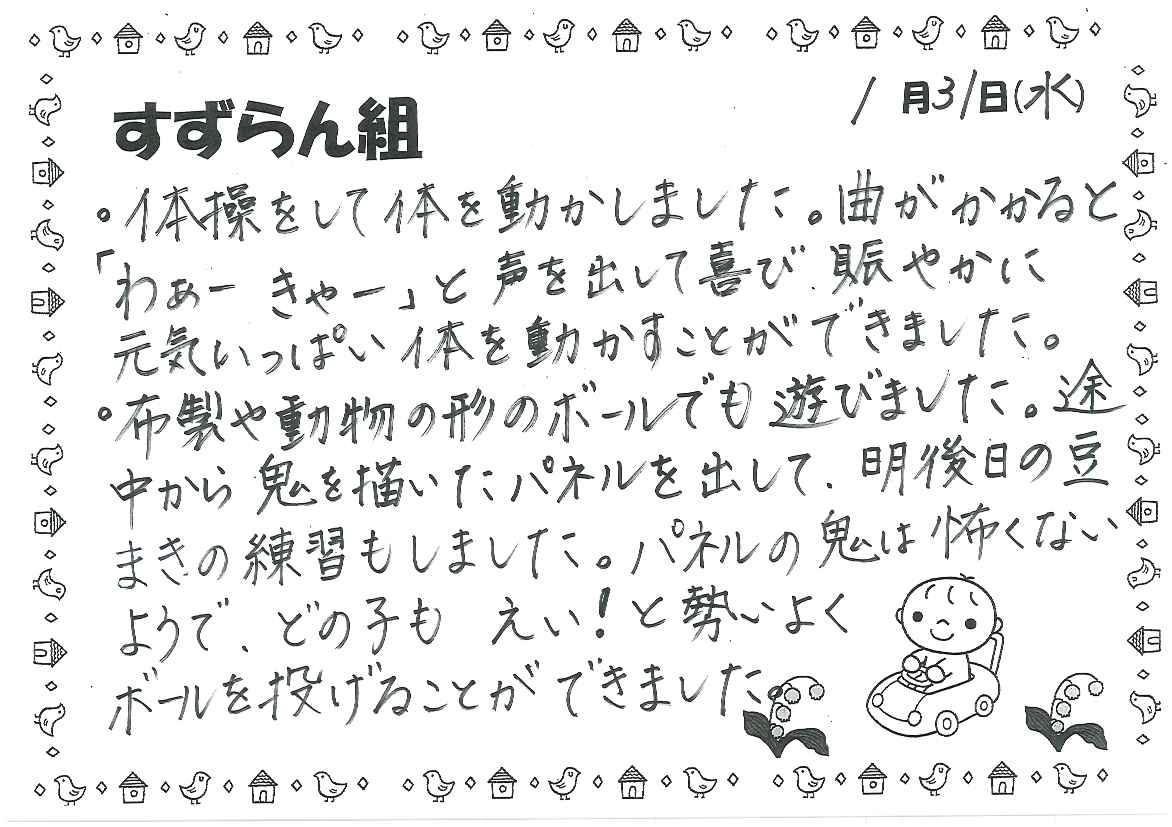 すずらん組
1月31日(水)
。体操をして体を動かしました。曲がかかると
「わぁー きゃー」と声を出して喜び 賑やかに
元気いっぱい体を動かすことができました。
。布製や動物の形のボールでも遊びました。途
中から鬼を描いたパネルを出して、明後日の豆
まきの練習もしました。パネルの鬼は怖くない
ようで、どの子も えぃ!と勢いよく
ボールを投げることができました。